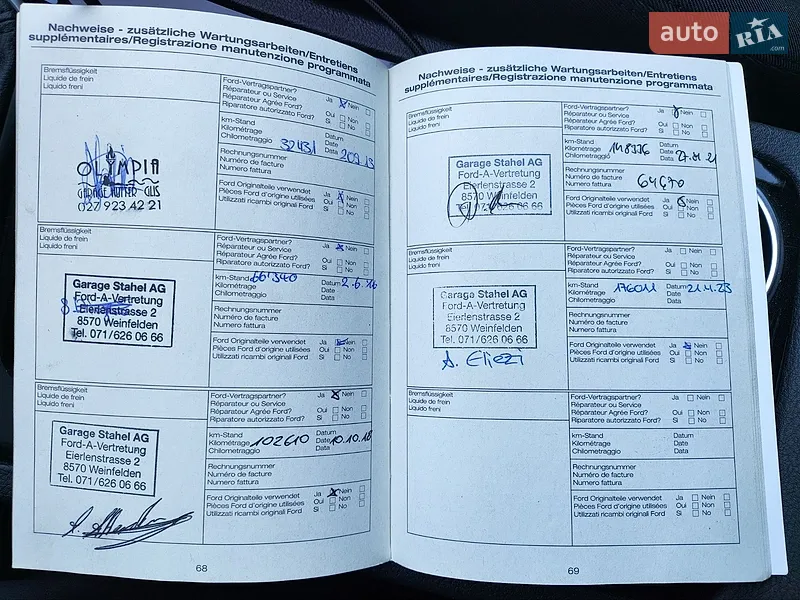 Nachweise - zusätzliche Wartungsarbeiten/Entretiens
supplémentaires/Registrazione manutenzione programmata
Bremsflüssigkeit
Liquide de frein
Liquido freni
OLYMPIA
027 923 42 21
Ford-Vertragspartner? Ja Nein
Réparateur ou Service
Réparateur Agrée Ford? Oui Non
Riparatore autorizzato Ford? Si No
km-Stand Datum
Kilométrage 32431 Date
Chilometraggio Data
Rechnungsnummer
Numéro de facture
Numero fattura
Ford Originalteile verwendet Ja Nein
Pièces Ford d'origine utilisées Oui Non
Utilizzati ricambi original Ford Si No
Bremsflüssigkeit
Liquide de frein
Liquido freni
Garage Stahel AG
Ford-A-Vertretung
Eierlenstrasse 2
8570 Weinfelden
Tel. 071/626 06 66
Ford-Vertragspartner? Ja Nein
Réparateur ou Service
Réparateur Agrée Ford? Oui Non
Riparatore autorizzato Ford? Si No
km-Stand 66'340 Datum 2.6.16
Kilométrage Date
Chilometraggio Data
Rechnungsnummer
Numéro de facture
Numero fattura
Ford Originalteile verwendet Ja Nein
Pièces Ford d'origine utilisées Oui Non
Utilizzati ricambi original Ford Si No
Bremsflüssigkeit
Liquide de frein
Liquido freni
Garage Stahel AG
Ford-A-Vertretung
Eierlenstrasse 2
8570 Weinfelden
Tel. 071/626 06 66
Ford-Vertragspartner? Ja Nein
Réparateur ou Service
Réparateur Agrée Ford? Oui Non
Riparatore autorizzato Ford? Si No
km-Stand Datum
Kilométrage 102610 Date 10.10.18
Chilometraggio Data
Rechnungsnummer
Numéro de facture
Numero fattura
Ford Originalteile verwendet Ja Nein
Pièces Ford d'origine utilisées Oui Non
Utilizzati ricambi original Ford Si No
68
Nachweise - zusätzliche Wartungsarbeiten/Entretiens
supplémentaires/Registrazione manutenzione programmata
Bremsflüssigkeit
Liquide de frein
Liquido freni
Garage Stahel AG
Ford-A-Vertretung
Eierlenstrasse 2
8570 Weinfelden
Tel. 071/626 06 66
Ford-Vertragspartner? Ja Nein
Réparateur ou Service
Réparateur Agrée Ford? Oui Non
Riparatore autorizzato Ford? Si No
km-Stand Datum
Kilométrage 148336 Date
Chilometraggio Data
Rechnungsnummer
Numéro de facture 64670
Numero fattura
Ford Originalteile verwendet Ja Nein
Pièces Ford d'origine utilisées Oui Non
Utilizzati ricambi original Ford Si No
Bremsflüssigkeit
Liquide de frein
Liquido freni
Garage Stahel AG
Ford-A-Vertretung
Eierlenstrasse 2
8570 Weinfelden
Tel. 071/626 06 66
A. Eliezi
Ford-Vertragspartner? Ja Nein
Réparateur ou Service
Réparateur Agrée Ford? Oui Non
Riparatore autorizzato Ford? Si No
km-Stand 176011 Datum 21.4.23
Kilométrage Date
Chilometraggio Data
Rechnungsnummer
Numéro de facture
Numero fattura
Ford Originalteile verwendet Ja Nein
Pièces Ford d'origine utilisées Oui Non
Utilizzati ricambi original Ford Si No
Bremsflüssigkeit
Liquide de frein
Liquido freni
Ford-Vertragspartner? Ja Nein
Réparateur ou Service
Réparateur Agrée Ford? Oui Non
Riparatore autorizzato Ford? Si No
km-Stand Datum
Kilométrage Date
Chilometraggio Data
Rechnungsnummer
Numéro de facture
Numero fattura
Ford Originalteile verwendet Ja Nein
Pièces Ford d'origine utilisées Oui Non
Utilizzati ricambi original Ford Si No
69
auto RIA
.com